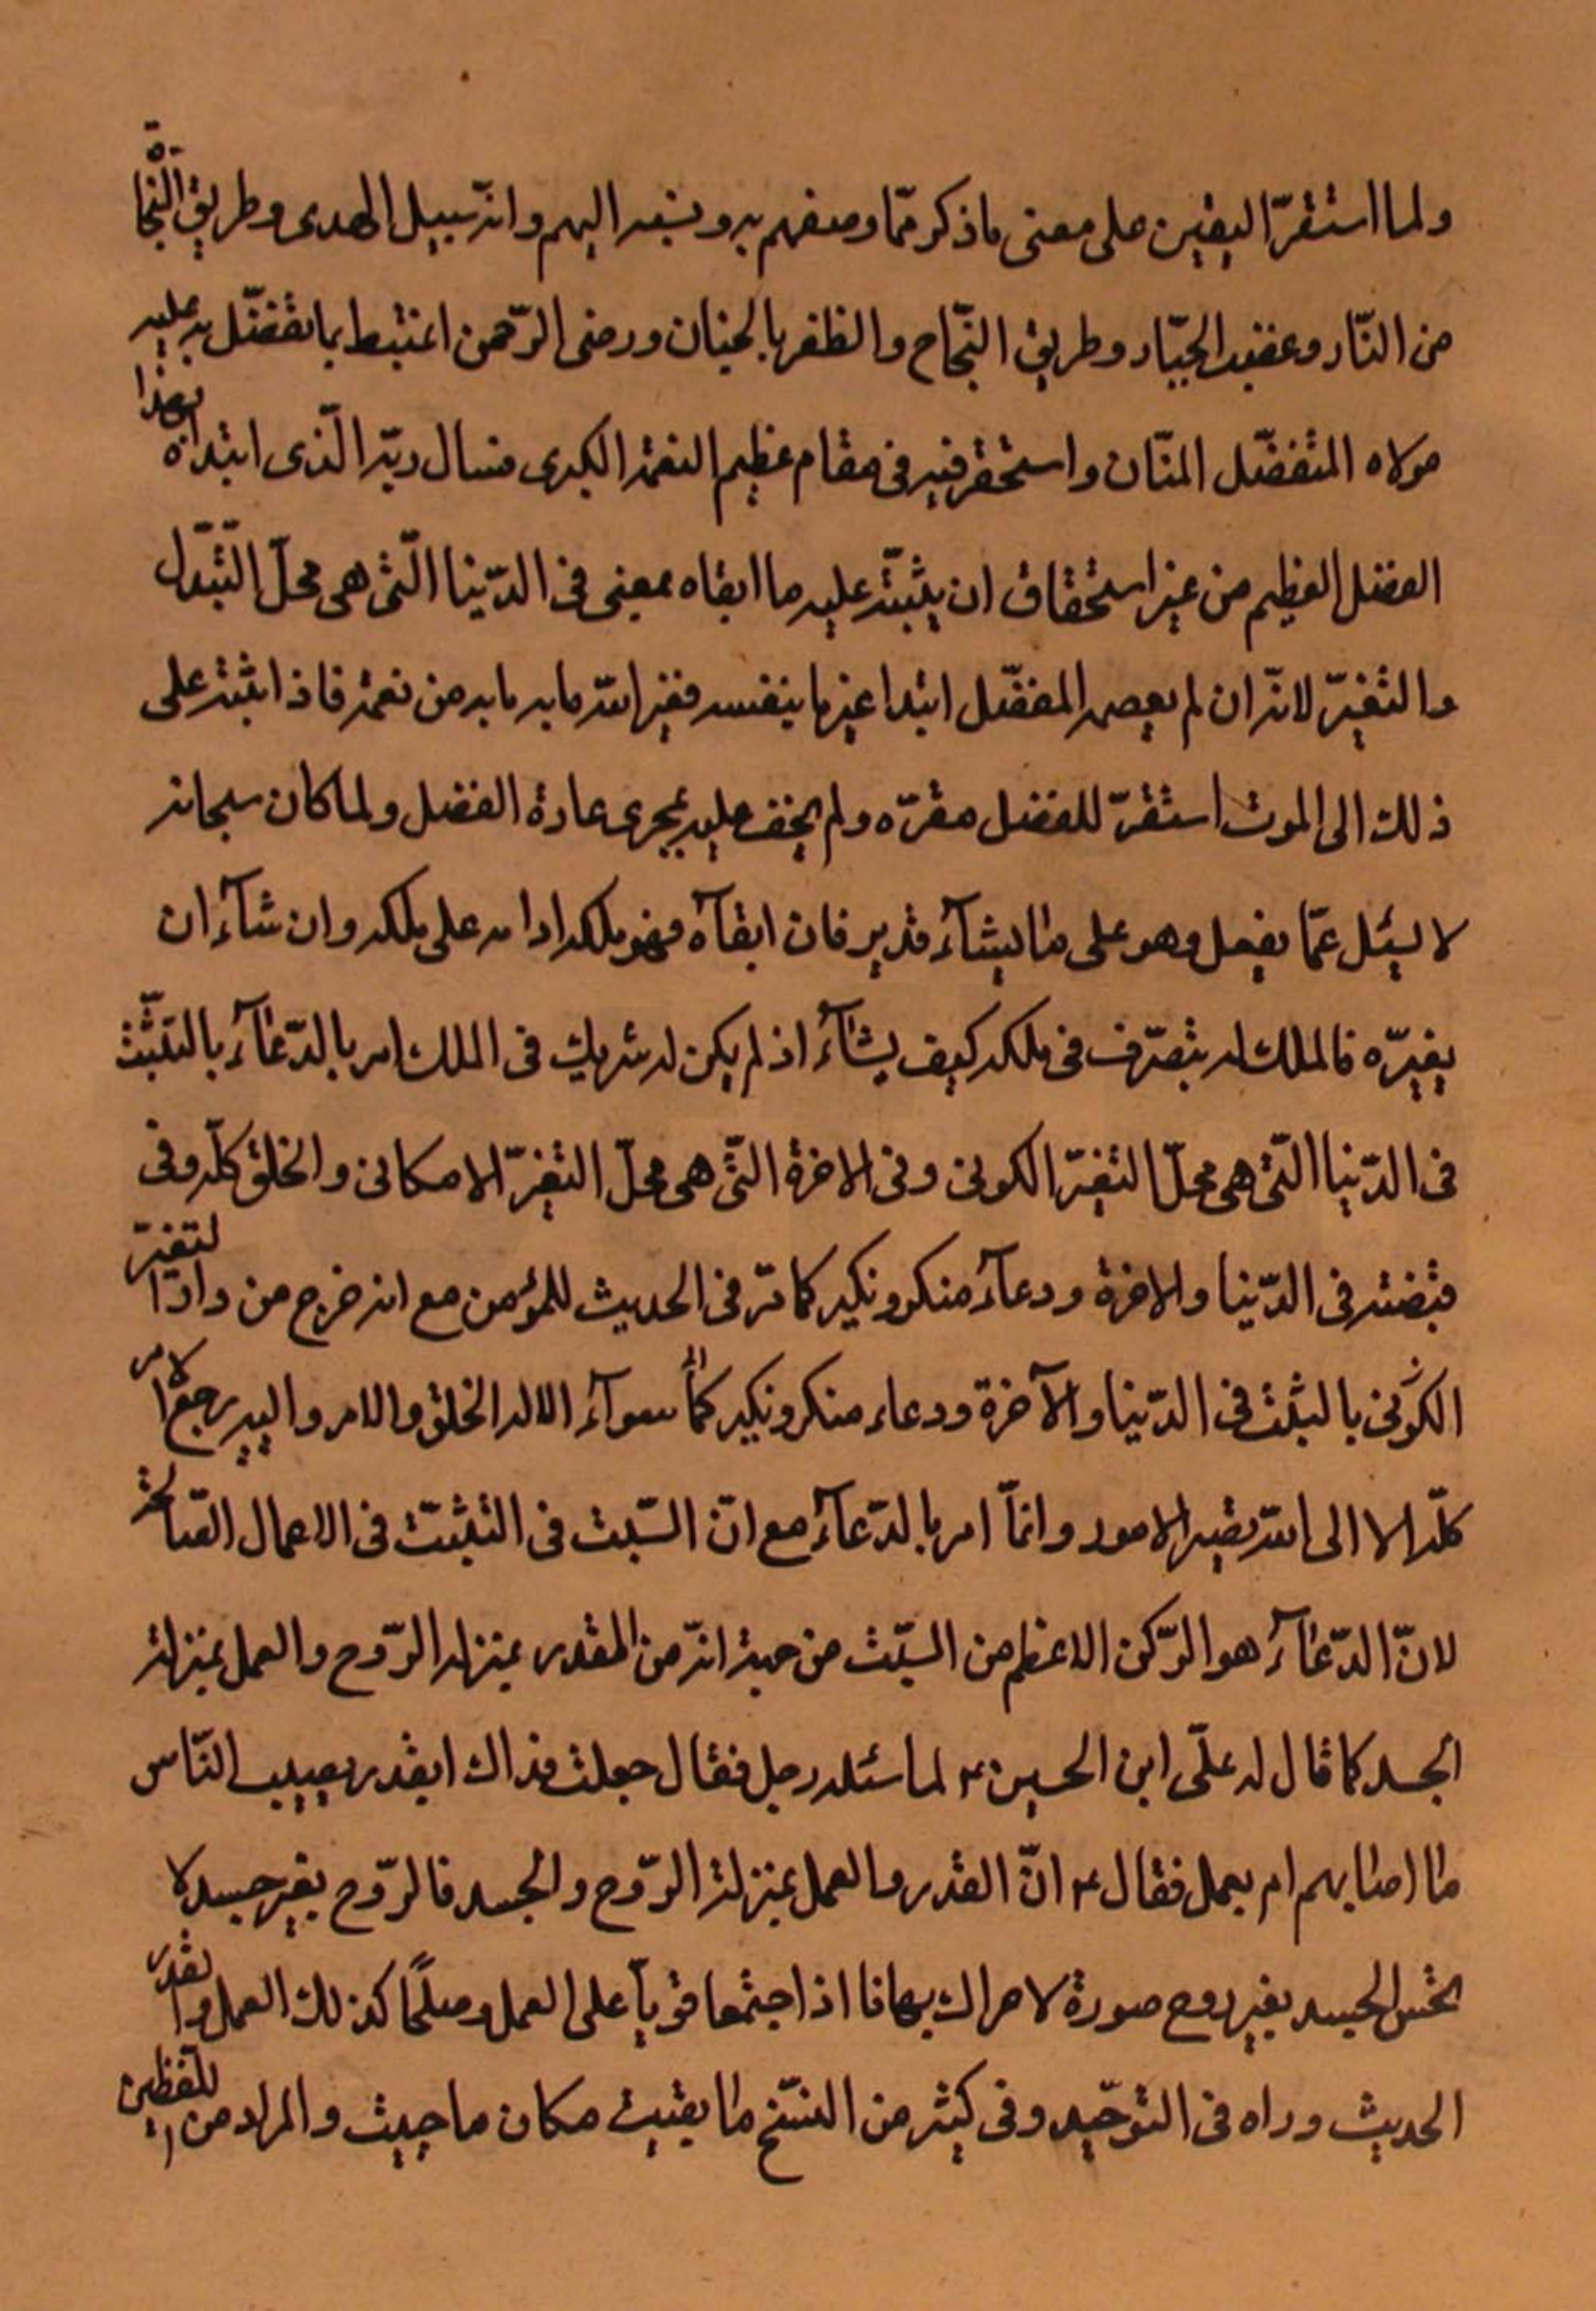 ولما استقرّ اليقين على معنى ما ذكر ممّا وصفهم به ونسبه اليهم وانّه سبيل الهدى وطريق النّجاة
من النّار وغضب الجبّار وطريق النّجاح والظفر بالجنان ورضى الرّحمن اغتبط بما تفضّل به عليه
مولاه المتفضّل المنّان واستحقر فيه فى مقام عظيم النعمة الكبرى فسال ربّه الّذى ابتداه بهذا
الفضل العظيم من غير استحقاق ان يثبّته عليه ما ابقاه يعنى فى الدّنيا الّتى هى محلّ التّبدّل
والتغيّر لانّه ان لم يعصمه المفضّل ابتدا غيّر ما بنفسه فغيّر الله ما به ما به من نعمة فاذا ثبته على
ذلك الى الموت استقرّ للفضل مقرّه ولم يخف عليه بمجرى عادة الفضل ولما كان سبحانه
لا يسئل عمّا يفعل وهو على ما يشآء قدير فان ابقآه فهو ملكه ادامه على ملكه وان شآء ان
يغيرّه فالملك له يتصرّف فى ملكه كيف يشآء اذ لم يكن له شريك فى الملك امر بالدّعآء بالتثبّت
فى الدّنيا الّتى هى محلّ التغيّر الكونى وفى الاخرة التّى هى محلّ التغيّر الامكانى والخلق كلّه وفى
قبضته فى الدّنيا والاخرة ودعآء منكر ونكير كما مرّ فى الحديث للمؤمن مع انه خرج من دار التغيّر
الكونى بالتثبّت فى الدّنيا والآخرة ودعاء منكر ونكير كماأ سوآء الا له الخلق والامر واليه يرجع الامر
كلّه الا الى الله تصير الامور وانمّا امر بالدّعآء مع انّ السّبب فى التثبّت فى الاعمال الصّالحة
لانّ الدّعآء هو الرّكن الاعظم من السبّب من حيث انّه من المقدر بمنزلة الرّوح والعمل بمنزلة
الجسد كما قال له علّى ابن الحسين ع لما سئله رجل فقال جعلت فداك ابقدر يصيب النّاس
ما اصابهم ام بعمل فقال ع انّ القدر والعمل بمنزلة الرّوح والجسد فالرّوح بغير جسد لا
تحسّ والجسد بغير روح صورة لا حراك بها فاذا اجتمعا قويآ على العمل وصلحا كذلك العمل والقدر
الحديث وراه فى التوحيد وفى كثير من النسّخ ما بقيت مكان ما حييت والمراد من اللفظين